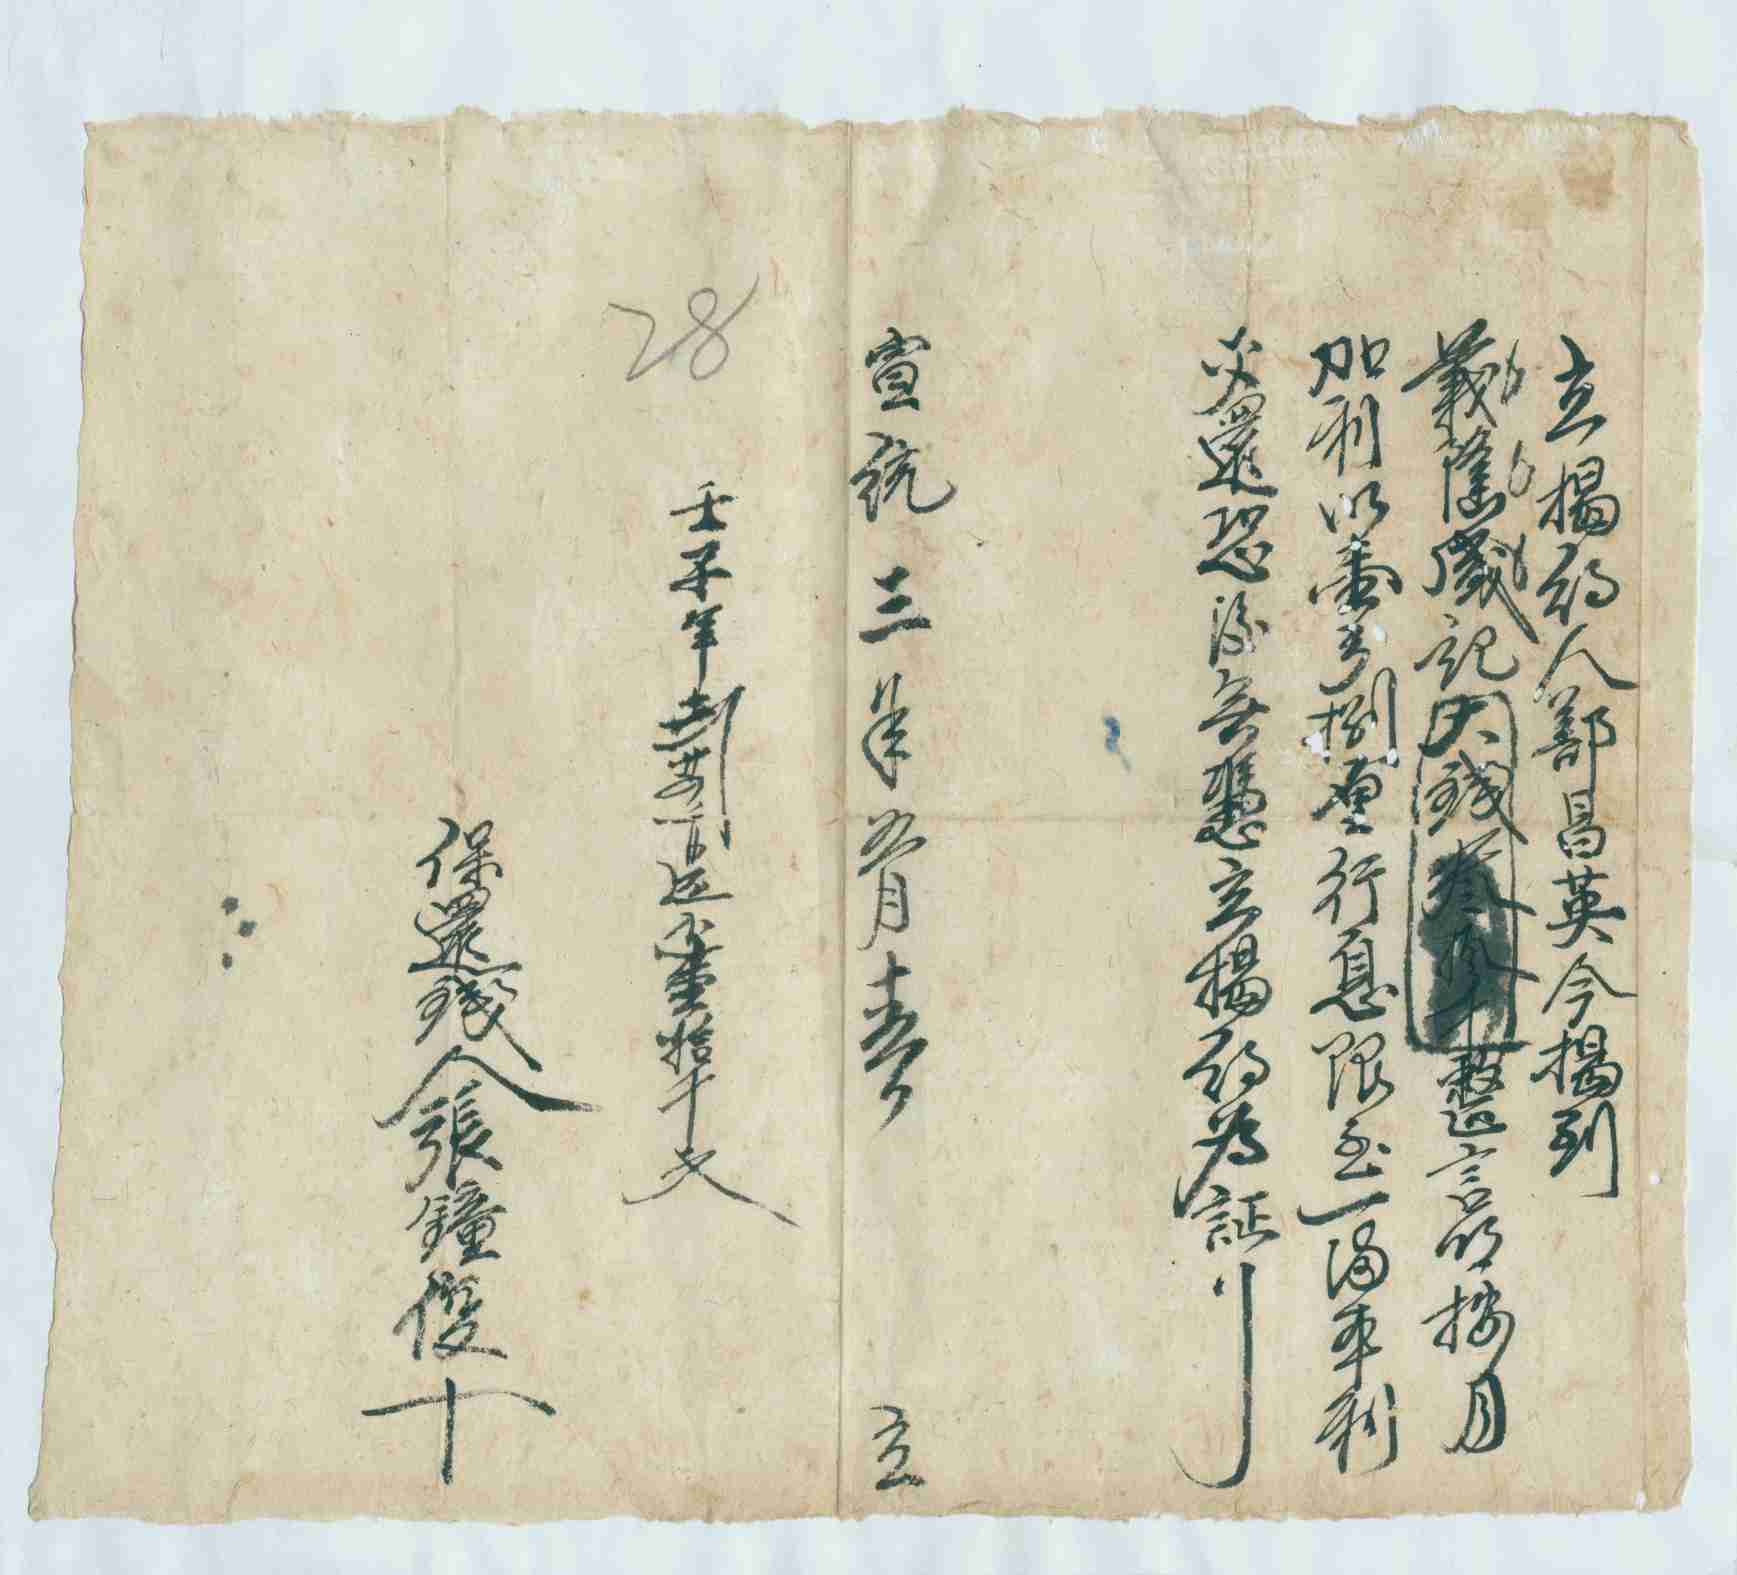 立揭約人鄯昌英今揭到
義隆盛記大錢叁拾千整言明按月
加利以壹分捌厘行息限至一滿本利
交還恐後無憑立揭約為証
宣統三年五月十五日 立
28
壬子年
還錢壹拾千文
保還錢人張鐘俊十